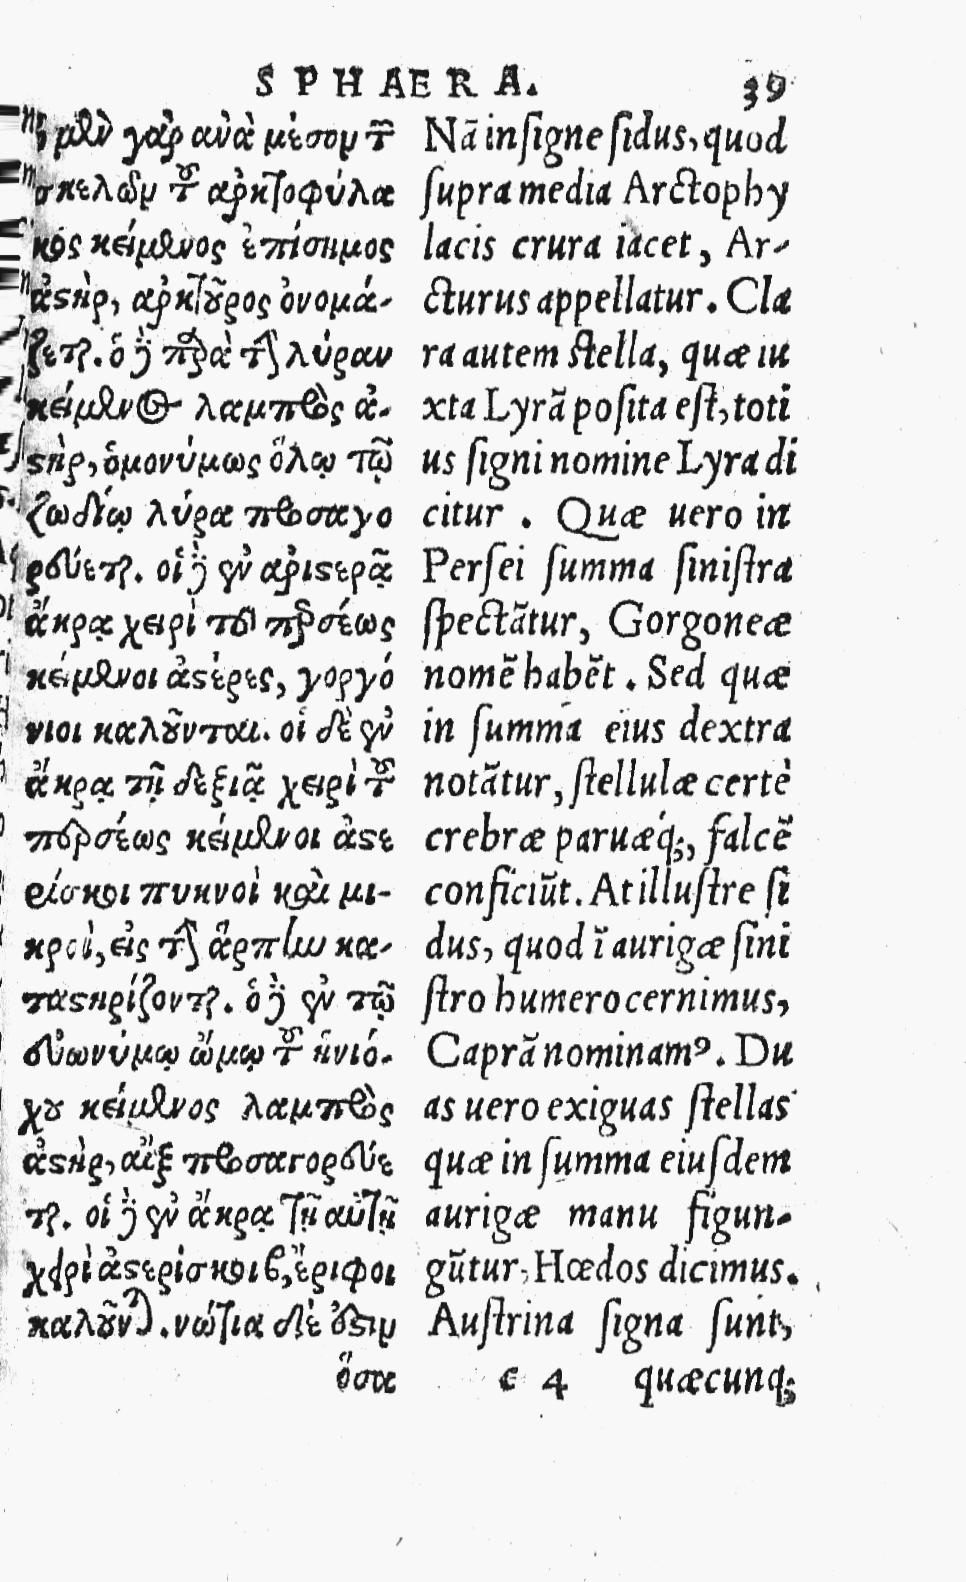 SPHAERA. 39
ὁ μὲν γὰρ ἀνὰ μέσον τῶν
σκελῶν τοῦ ἀρκτοφύλα
κος κείμενος ἐπίσημος
ἀστὴρ, ἀρκτοῦρος ὀνομά-
ζεται. ὁ δὲ παρὰ τὴν λύραν
κείμενος λαμπρὸς ἀ-
στὴρ, ὁμονύμως ὅλῳ τῷ
ζωδίῳ λύρα προσαγο
ρεύεται. οἱ δὲ ἐν ἀριστερᾷ
ἄκρᾳ χειρὶ τοῦ περσέως
κείμενοι ἀστέρες, γοργό
νιοι καλοῦνται. οἱ δὲ ἐν
ἄκρᾳ τῇ δεξιᾷ χειρὶ τοῦ
περσέως κείμενοι ἀστε
ρίσκοι πυκνοὶ καὶ μι-
κροὶ, εἰς τὴν ἅρπην κα-
ταστηρίζονται. ὁ δὲ ἐν τῷ
εὐωνύμῳ ὤμῳ τοῦ ἡνιό-
χου κείμενος λαμπρὸς
ἀστὴρ, αἲξ προσαγορεύε
ται. οἱ δὲ ἐν ἄκρᾳ τῇ αὐτῇ
χειρὶ ἀστερίσκοι β, ἔριφοι
καλοῦνται. νώτια δέ ἐστιν
ὅσα
Nã insigne sidus, quod
supra media Arctophy
lacis crura iacet, Ar-
cturus appellatur. Cla
ra autem stella, quæ iu
xta Lyrã posita est, toti
us signi nomine Lyra di
citur. Quæ uero in
Persei summa sinistra
spectãtur, Gorgoneæ
nomẽ habẽt. Sed quæ
in summa eius dextra
notãtur, stellulæ certè
crebræ paruæq́;, falcẽ
conficiũt. At illustre si
dus, quod ĩ aurigæ sini
stro humero cernimus,
Caprã nominamꝰ. Du
as uero exiguas stellas
quæ in summa eiusdem
aurigæ manu figun-
gũtur, Hœdos dicimus.
Austrina signa sunt,
e 4 quæcunq;